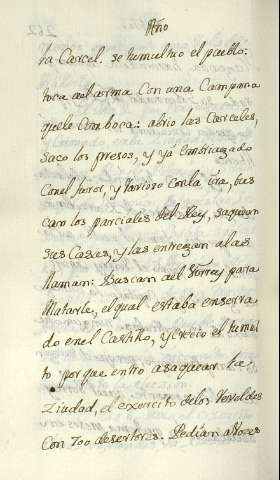 Año
la Carcel. se tumultuo el pueblo:
toca al arma Con una Campana
que lo Comboca: abrio las Carceles,
saco los presos, y yá embriagado
con el furor, y furioso con la ira, bus
can los parciales del Rey, saquean
sus Casas, y las entregan a las
llamas: Buscan al Virrey para
Matarle, el qual estaba enserra
do en el Castillo, y crecio el tumul
to por que entro a saquear la
Ziudad, el exercito de los Revoldes
Con 700 desertores. Pedian a Vozes